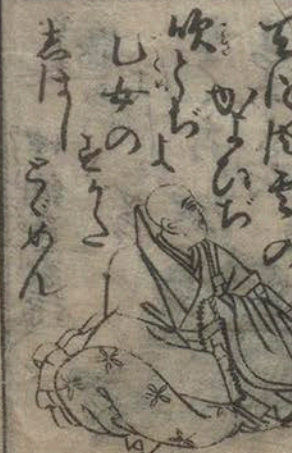 天つ風雲の
かよひぢ
吹とぢよ
乙女の
すがた
しはし
とゞめん